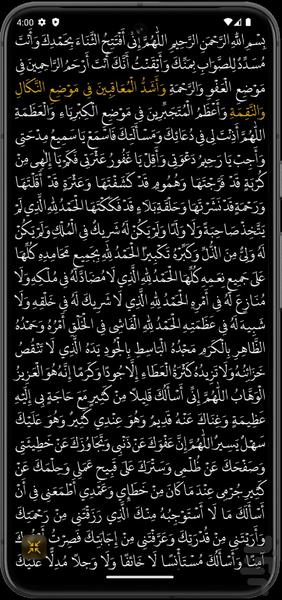 4:00
بِسْمِ اللهِ الرَّحْمنِ الرَّحِيمِ اَللّٰهُمَّ إِنِّي أَفْتَتِحُ الثَّنَاءَ بِحَمْدِكَ وَأَنْتَ
مُسَدِّدٌ لِلصَّوَابِ بِمَنِّكَ وَأَيْقَنْتُ أَنَّكَ أَنْتَ أَرْحَمُ الرَّاحِمِينَ فِي
مَوْضِعِ الْعَفْوِ وَالرَّحْمَةِ وَأَشَدُّ الْمُعَاقِبِينَ فِي مَوْضِعِ النَّكَالِ
وَالنَّقِمَةِ وَأَعْظَمُ الْمُتَجَبِّرِينَ فِي مَوْضِعِ الْكِبْرِيَاءِ وَالْعَظَمَةِ
اَللّٰهُمَّ أَذِنْتَ لِي فِي دُعَائِكَ وَمَسْأَلَتِكَ فَاسْمَعْ يَا سَمِيعُ مِدْحَتِي
وَأَجِبْ يَا رَحِيمُ دَعْوَتِي وَأَقِلْ يَا غَفُورُ عَثْرَتِي فَكَمْ يَا إِلٰهِي مِنْ
كُرْبَةٍ قَدْ فَرَّجْتَهَا وَهُمُومٍ قَدْ كَشَفْتَهَا وَعَثْرَةٍ قَدْ أَقَلْتَهَا
وَرَحْمَةٍ قَدْ نَشَرْتَهَا وَحَلْقَةِ بَلَاءٍ قَدْ فَكَكْتَهَا الْحَمْدُ لِلّٰهِ الَّذِي لَمْ
يَتَّخِذْ صَاحِبَةً وَلَا وَلَدًا وَلَمْ يَكُنْ لَهُ شَرِيكٌ فِي الْمُلْكِ وَلَمْ يَكُنْ
لَهُ وَلِيٌّ مِنَ الذُّلِّ وَكَبِّرْهُ تَكْبِيرًا الْحَمْدُ لِلّٰهِ بِجَمِيعِ مَحَامِدِهِ كُلِّهَا
عَلَى جَمِيعِ نِعَمِهِ كُلِّهَا الْحَمْدُ لِلّٰهِ الَّذِي لَا مُضَادَّ لَهُ فِي مُلْكِهِ وَلَا
مُنَازِعَ لَهُ فِي أَمْرِهِ الْحَمْدُ لِلّٰهِ الَّذِي لَا شَرِيكَ لَهُ فِي خَلْقِهِ وَلَا
شَبِيهَ لَهُ فِي عَظَمَتِهِ الْحَمْدُ لِلّٰهِ الْفَاشِي فِي الْخَلْقِ أَمْرُهُ وَحَمْدُهُ
الظَّاهِرِ بِالْكَرَمِ مَجْدُهُ الْبَاسِطِ بِالْجُودِ يَدَهُ الَّذِي لَا تَنْقُصُ
خَزَائِنُهُ وَلَا تَزِيدُهُ كَثْرَةُ الْعَطَاءِ إِلَّا جُودًا وَكَرَمًا إِنَّهُ هُوَ الْعَزِيزُ
الْوَهَّابُ اَللّٰهُمَّ إِنِّي أَسْأَلُكَ قَلِيلًا مِنْ كَثِيرٍ مَعَ حَاجَةٍ بِي إِلَيْهِ
عَظِيمَةٍ وَغِنَاكَ عَنْهُ قَدِيمٌ وَهُوَ عِنْدِي كَثِيرٌ وَهُوَ عَلَيْكَ
سَهْلٌ يَسِيرٌ اَللّٰهُمَّ إِنَّ عَفْوَكَ عَنْ ذَنْبِي وَتَجَاوُزَكَ عَنْ خَطِيئَتِي
وَصَفْحَكَ عَنْ ظُلْمِي وَسَتْرَكَ عَلَى قَبِيحِ عَمَلِي وَحِلْمَكَ عَنْ
كَثِيرِ جُرْمِي عِنْدَ مَا كَانَ مِنْ خَطَايَ وَعَمْدِي أَطْمَعَنِي فِي أَنْ
أَسْأَلَكَ مَا لَا أَسْتَوْجِبُهُ مِنْكَ الَّذِي رَزَقْتَنِي مِنْ رَحْمَتِكَ
وَأَرَيْتَنِي مِنْ قُدْرَتِكَ وَعَرَّفْتَنِي مِنْ إِجَابَتِكَ فَصِرْتُ أَدْعُوكَ
آمِنًا وَأَسْأَلُكَ مُسْتَأْنِسًا لَا خَائِفًا وَلَا وَجِلًا مُدِلًّا عَلَيْكَ